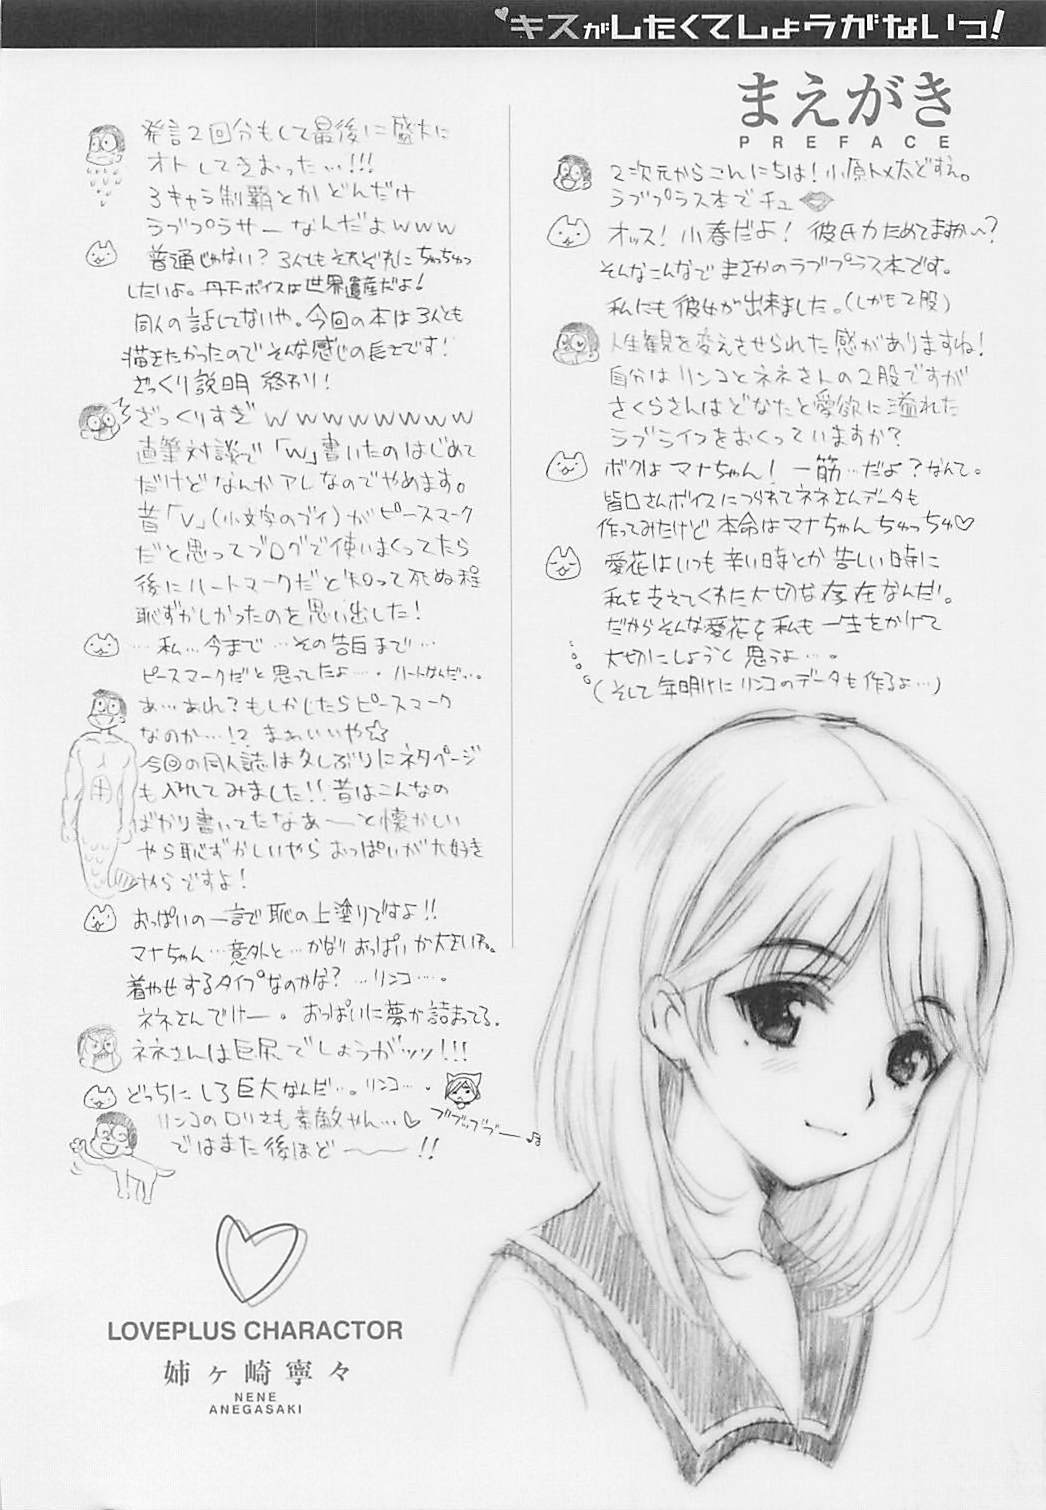 キスがしたくてしょうがないっ!
まえがき
PREFACE
2次元からこんにちは!小原トメ太どすえ。
ラブプラス本でチュ
オッス!小春だよ!彼氏力ためてますかー?
そんなこんなでまさかのラブプラス本です。
私にも彼女が出来ました。(しかも2股)
人生観を変えさせられた感がありますね!
自分はリンコとネネさんの2股ですが
さくらさんはどなたと愛欲に溢れた
ラブライフをおくっていますか?
ボクはマナちゃん!一筋…だよ?なんて。
皆口さんボイスにつられてネネさんデータも
作ってみたけど本命はマナちゃんちゅっちゅ♡
愛花はいつも辛い時とか苦しい時に
私を支えてくれた大切な存在なんだ!。
だからそんな愛花を私も一生をかけて
大切にしようと思うよ…。
(そして年明けにリンコのデータも作るよ…)
発言2回分もして最後に盛大に
オトしてきおった…!!!
3キャラ制覇とかどんだけ
ラブプラサーなんだよwww
普通じゃない?3人ともそれぞれにちゅっちゅっ
したいよ。丹下ボイスは世界遺産だよ!
同人の話してないや。今回の本は3人とも
描きたかったのでそんな感じの長さです!
ざっくり説明終わり!
ざっくりすぎwwwwwwww
直筆対談で「w」書いたのはじめて
だけどなんかアレなのでやめます。
昔「v」(小文字のブイ)がピースマーク
だと思ってブログで使いまくってたら
後にハートマークだと知って死ぬ程
恥ずかしかったのを思い出した!
…私…今まで…その告白まで…
ピースマークだと思ってたよ…。ハートなんだ…。
あ…あれ?もしかしたらピースマーク
なのか…!?まぁいいや☆
今回の同人誌は久しぶりにネタページ
も入れてみました!!昔はこんなの
ばかり書いてたなあーと懐かしい
やら恥ずかしいやらおっぱいが大好き
やらですよ!
おっぱいの一言で恥の上塗りですよ!!
マナちゃん…意外と…かなりおっぱいが大きい子。
着やせするタイプなのかな?…リンコ…。
ネネさんでけー。おっぱいに夢が詰まってる。
ネネさんは巨尻でしょうがッッ!!!
どっちにしろ巨大なんだ…。リンコ…。
リンコのロリさも素敵やん…♡
ブブッブブー♪
ではまた後ほど――!!
LOVEPLUS CHARACTOR
姉ヶ崎寧々
NENE
ANEGASAKI